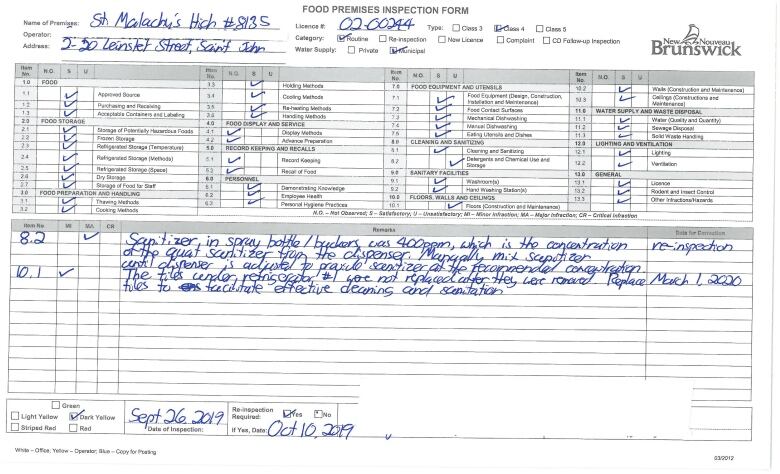 FOOD PREMISES INSPECTION FORM
Name of Premises: St. Malachy's High #8135
Operator:
Address: 2-20 Leinster Street, Saint John
Licence #: 02-00244 Type: Class 3 Class 4 Class 5
Category: Routine Re-inspection New Licence Complaint CD Follow-up Inspection
Water Supply: Private Municipal
New Nouveau
Brunswick
Item No. N.O. S U
1.0 FOOD
1.1 Approved Source
1.2 Purchasing and Receiving
1.3 Acceptable Containers and Labelling
2.0 FOOD STORAGE
2.1 Storage of Potentially Hazardous Foods
2.2 Frozen Storage
2.3 Refrigerated Storage (Temperature)
2.4 Refrigerated Storage (Methods)
2.5 Refrigerated Storage (Space)
2.6 Dry Storage
2.7 Storage of Food for Staff
3.0 FOOD PREPARATION AND HANDLING
3.1 Thawing Methods
3.2 Cooking Methods
Item No. N.O. S U
3.3 Holding Methods
3.4 Cooling Methods
3.5 Re-heating Methods
3.6 Handling Methods
4.0 FOOD DISPLAY AND SERVICE
4.1 Display Methods
4.2 Advance Preparation
5.0 RECORD KEEPING AND RECALLS
5.1 Record Keeping
5.2 Recall of Food
6.0 PERSONNEL
6.1 Demonstrating Knowledge
6.2 Employee Health
6.3 Personal Hygiene Practices
Item No. N.O. S U
7.0 FOOD EQUIPMENT AND UTENSILS
7.1 Food Equipment (Design, Construction,
Installation and Maintenance)
7.2 Food Contact Surfaces
7.3 Mechanical Dishwashing
7.4 Manual Dishwashing
7.5 Eating Utensils and Dishes
8.0 CLEANING AND SANITIZING
8.1 Cleaning and Sanitizing
8.2 Detergents and Chemical Use and
Storage
9.0 SANITARY FACILITIES
9.1 Washroom(s)
9.2 Hand Washing Station(s)
10.0 FLOORS, WALLS AND CEILINGS
10.1 Floors (Construction and Maintenance)
Item No. N.O. S U
10.2 Walls (Construction and Maintenance)
10.3 Ceilings (Constructions and
Maintenance)
11.0 WATER SUPPLY AND WASTE DISPOSAL
11.1 Water (Quality and Quantity)
11.2 Sewage Disposal
11.3 Solid Waste Handling
12.0 LIGHTING AND VENTILATION
12.1 Lighting
12.2 Ventilation
13.0 GENERAL
13.1 Licence
13.2 Rodent and Insect Control
13.3 Other Infractions/Hazards
N.O. – Not Observed; S – Satisfactory; U – Unsatisfactory; MI – Minor Infraction; MA – Major Infraction; CR – Critical Infraction
Item No. MI MA CR Remarks Date for Correction
8.2 Sanitizer, in spray bottle/buckets, was 400ppm, which is the concentration re-inspection
of the quat sanitizer from the dispenser. Manually mix sanitizer
until dispenser is adjusted to provide sanitizer at the recommended concentration.
10.1 The tiles under refrigerator #1 were not replaced after they were removed. Replace March 1, 2020
tiles to facilitate effective cleaning and sanitation
Green
Light Yellow Dark Yellow
Striped Red Red
Sept 26 2019
Date of Inspection:
Re-inspection
Required: Yes No
If Yes, Date: Oct 10, 2019
White – Office; Yellow – Operator; Blue – Copy for Posting
03/2012